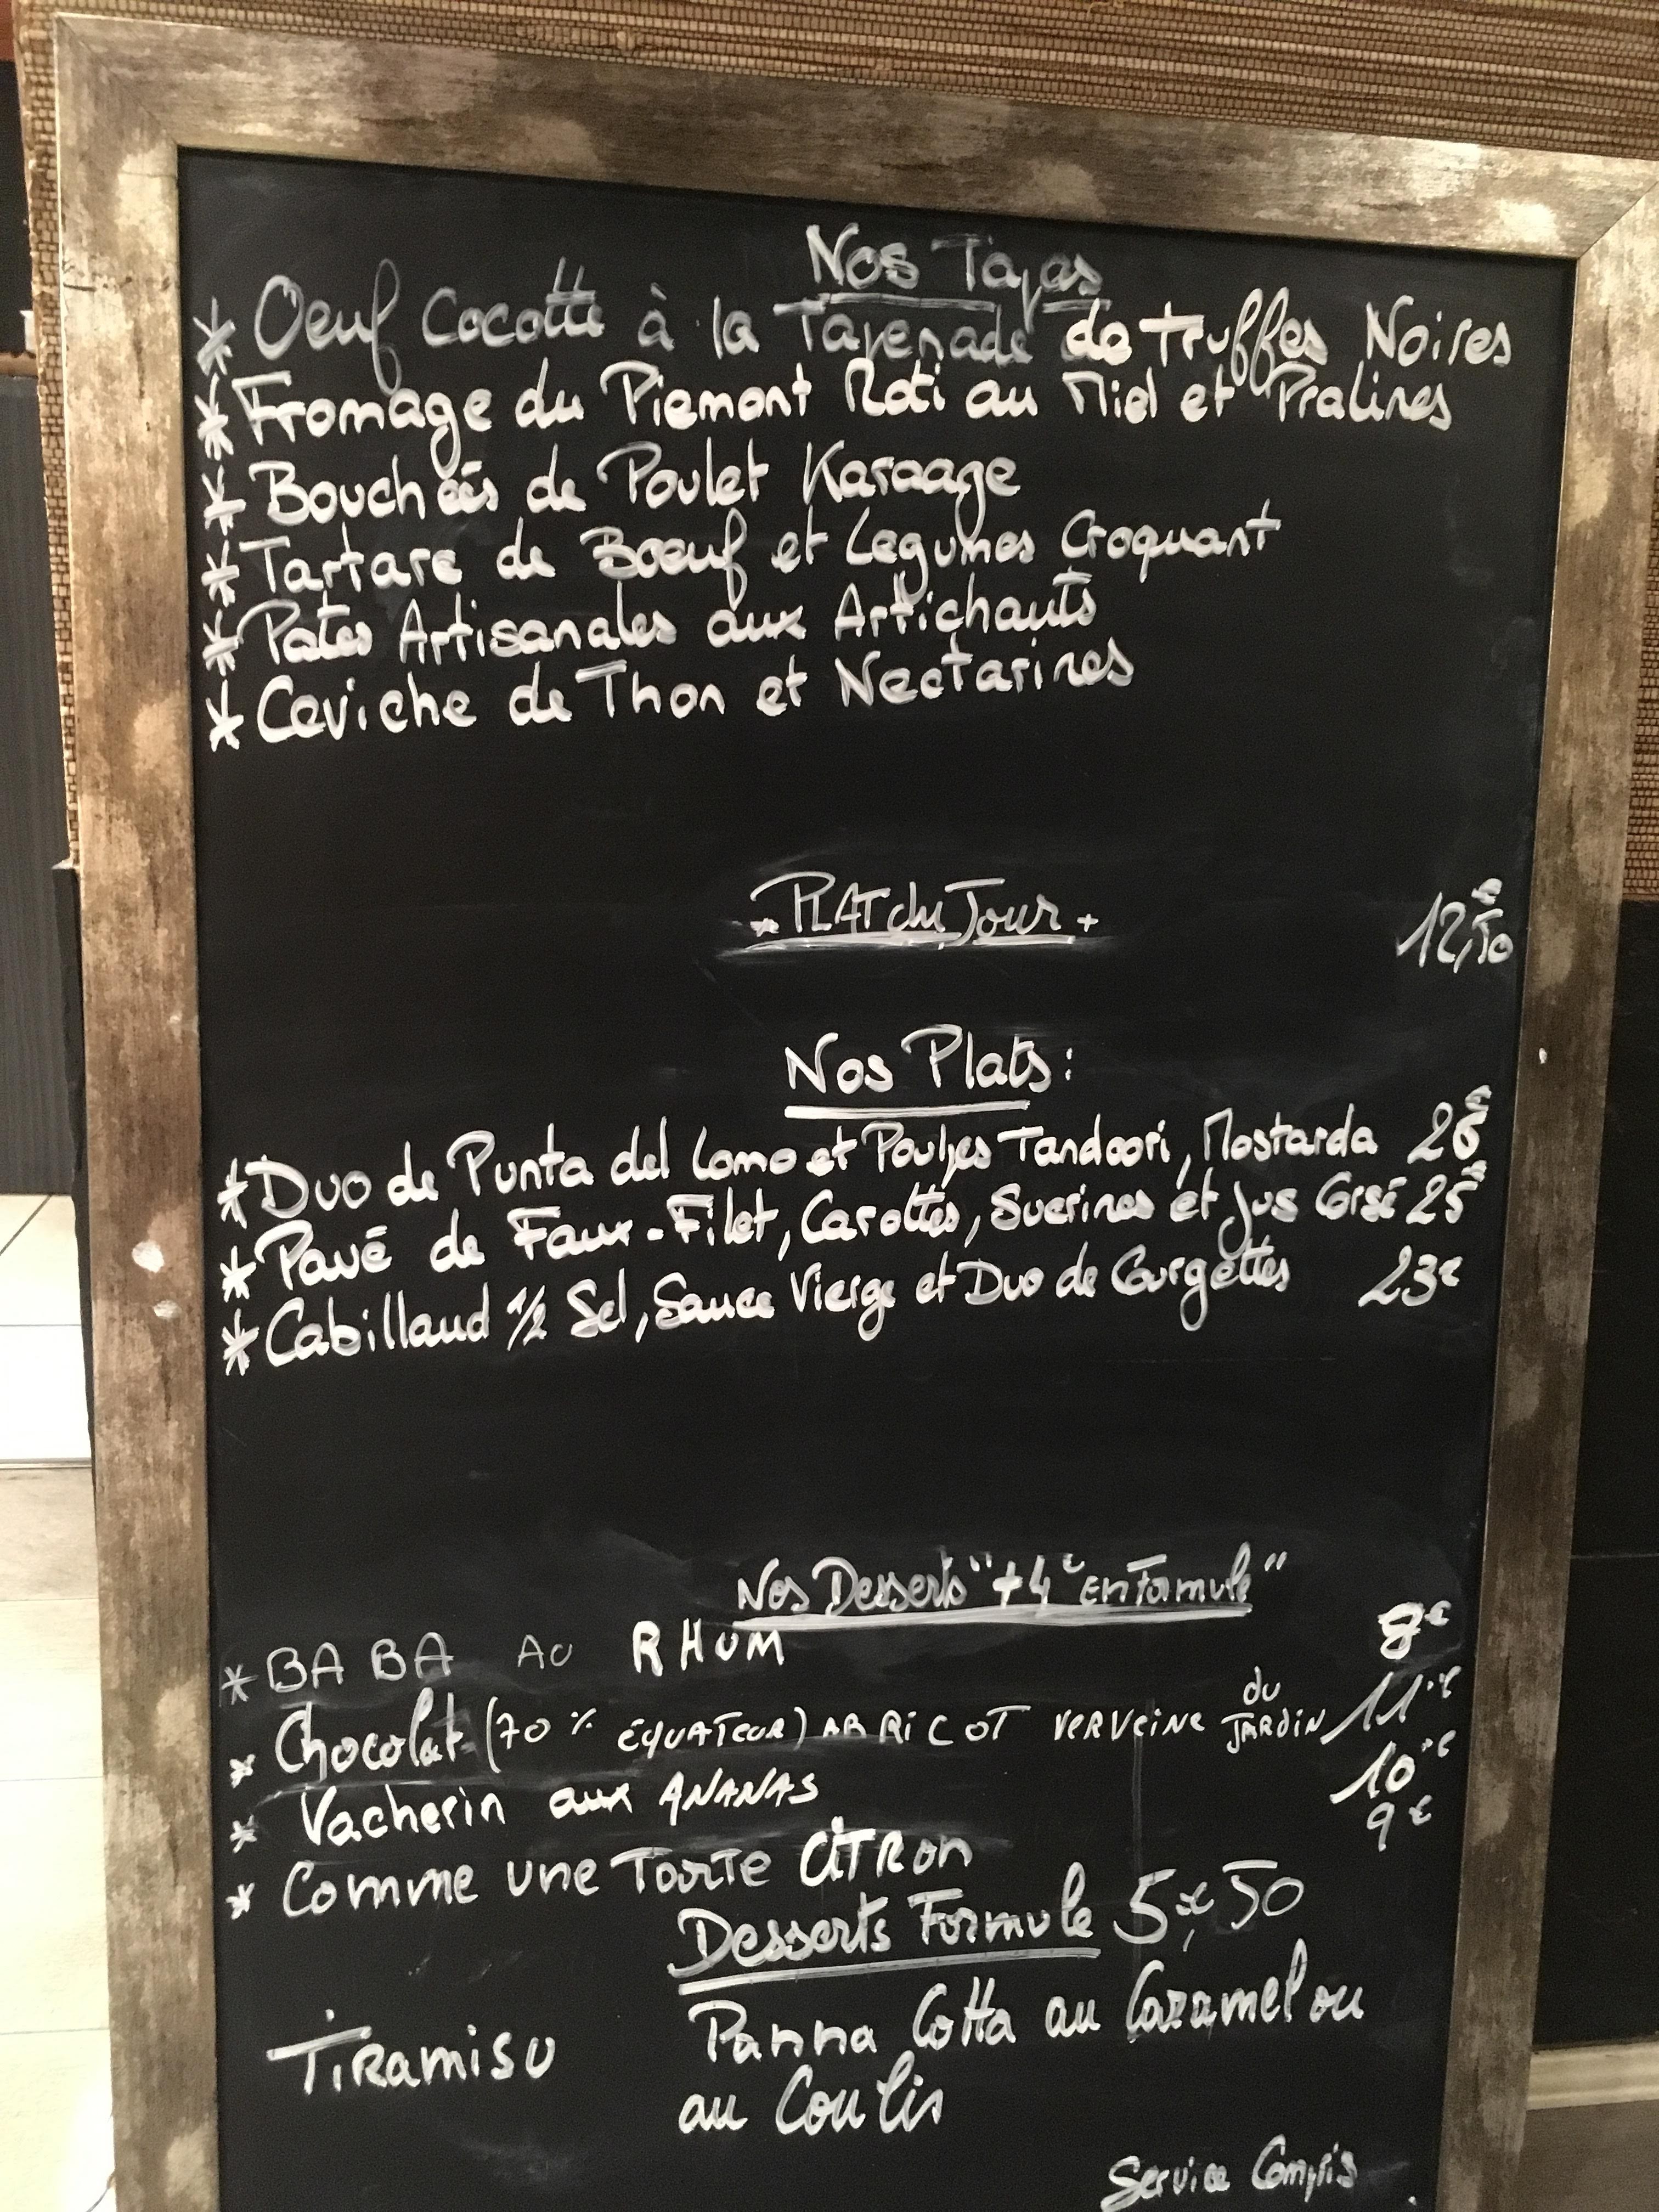 Nos Tapas
* Oeuf Cocotte à la Tapenade de Truffes Noires
* Fromage du Piemont Roti au Miel et Pralines
* Bouchées de Poulet Karaage
* Tartare de Boeuf et Legumes Croquant
* Pates Artisanales aux Artichauts
* Ceviche de Thon et Nectarines
* PLAT du Jour + 12,€50
Nos Plats:
* Duo de Punta del Lomo et Poulpes Tandoori, Mostarda 26€
* Pavé de Faux-Filet, Carottes, Sucrines et Jus Corsé 25€
* Cabillaud 1/2 Sel, Sauce Vierge et Duo de Courgettes 23€
Nos Desserts "+4€ en Formule"
* BABA AU RHUM 8€
* Chocolat (70 % ÉQUATEUR) ABRICOT VERVEINE du JARDIN 11€
* Vacherin aux ANANAS 10€
* Comme une Tarte CITRON 9€
Desserts Formule 5,€50
Tiramisu Panna Cotta au Caramel ou
au Coulis
Service Compris